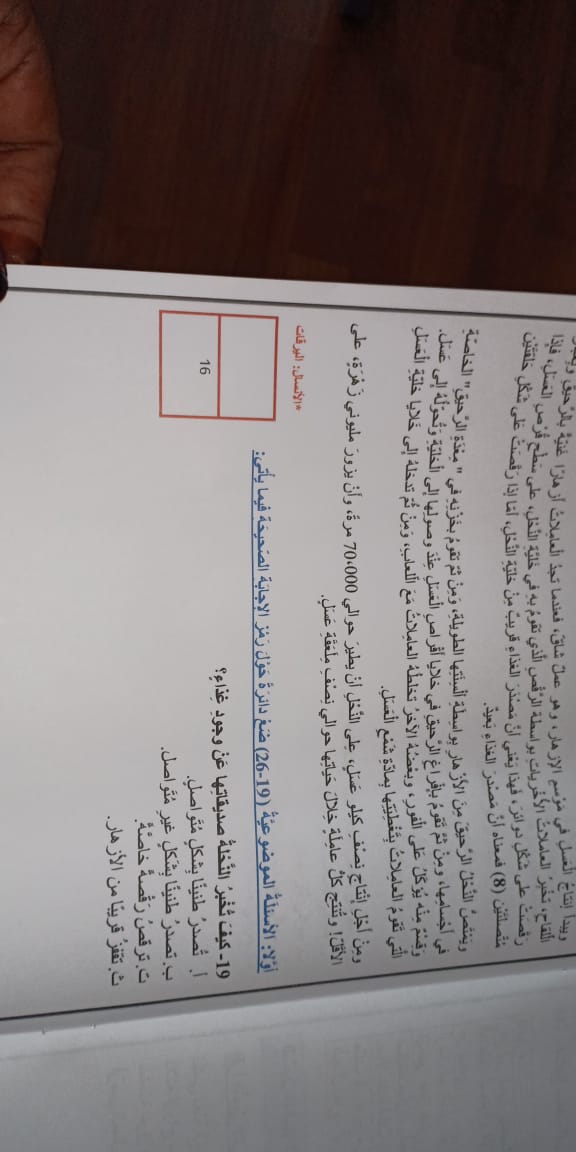 ويبدأ إنتاج العسل في موسم الازهار، وهو عمل شاق، فعندما تجدُ العاملاتُ أزهارًا غنيّة بالرّحيق
اللقاح، تخبرُ العاملات الأخريات بواسطة الرّقص الّذي تقوم به في خليّة النّحل، على سطح قُرص العسل، فإذا
رقصتْ على شكل دوائر، فهذا يعني أنّ مصدر الغذاء قريبٌ مِنْ خليّةِ النّحل، أمّا إذا رقصتْ على شكل حلقتيْنِ
متّصلتيْن (8) فمعناه أنّ مصدر الغذاء بعيدٌ.
ويمتصُّ النّحلُ الرّحيقَ مِنَ الأزهار بواسطة ألسِنتِها الطويلة، ومِنْ ثمّ تقومُ بخَزنِه في " مِعْدَة الرّحيق" الخاصّة
في أجسامها، ومِنْ ثمّ تقومُ بإفراغ الرّحيق في خلايا أقراص العسل عِنْدَ وصولها إلى الخليّة وتُحوّلُهُ إلى عسل.
وقسمٌ منْه يُؤكلُ على الفور، وبعضُهُ الآخرُ تخلطُهُ العاملاتُ مَعَ اللّعاب، ومِنْ ثمّ تدخلهُ إلى خلايا خليّةِ العسل
الّتي تقومُ العاملاتُ بتغطيتها بمادّة شمع العسل.
ومِنْ أجل إنتاج نِصْف كيلو عسل، على النّحل أنْ يطيرَ حوالي 70،000 مرة، وأنْ يزورَ مليوني زَهْرَةٍ، على
الأقلّ! وتُنتج كلُّ عاملة خلالَ حياتها حوالي نِصْفِ مِلعَقَةِ عسل.
*الأنسال: اليرقات
أوّلا: الأسئلةُ الموضوعيّةُ (19-26) ضعْ دائرةً حوْلَ رَمْزِ الإجابَةِ الصّحيحَة فيما يأتي:
16
19- كيفَ تُخْبِرُ النّحْلَةُ صديقاتِها عَنْ وجودِ غذاءٍ؟
أ. تُصدرُ طنينًا بِشكلٍ مُتواصلٍ.
ب. تصدرُ طنينًا بِشكلٍ غيرِ مُتواصل.
ت. ترقص رقصةً خاصّةً.
ث. تقفزُ قريبًا من الأزهار.